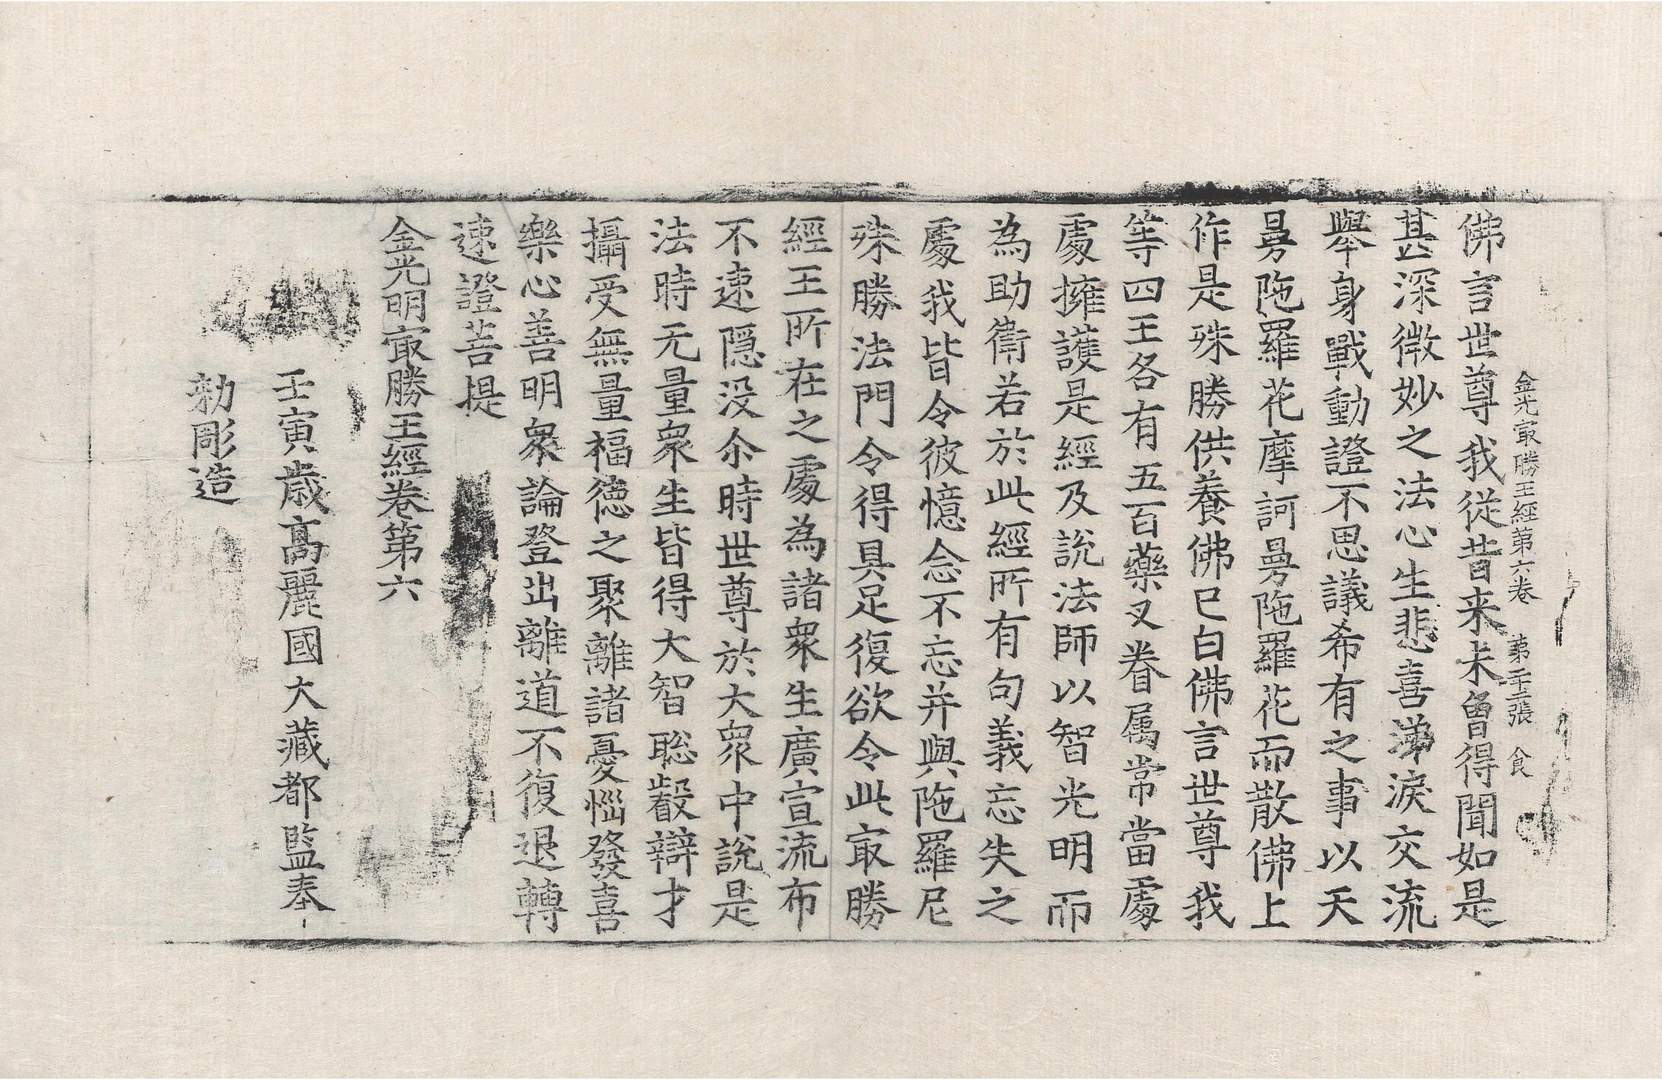 金光㝡勝王經第六卷 第二十三張 食
佛言世尊我從昔来未曾得聞如是
甚深微妙之法心生悲喜涕淚交流
舉身戰動證不思議希有之事以天
曼陁羅花摩訶曼陁羅花而散佛上
作是殊勝供養佛已白佛言世尊我
等四王各有五百藥叉眷属常當處
處擁護是經及說法師以智光明而
為助衛若於此經所有句義忘失之
處我皆令彼憶念不忘并與陁羅尼
殊勝法門令得具足復欲令此㝡勝
經王所在之處為諸衆生廣宣流布
不速隱没尒時世尊於大衆中說是
法時无量衆生皆得大智聡叡辯才
攝受無量福德之聚離諸憂惱發喜
樂心善明衆論登出離道不復退轉
速證菩提
金光明㝡勝王經卷第六
壬寅歳高麗國大藏都監奉
勑彫造